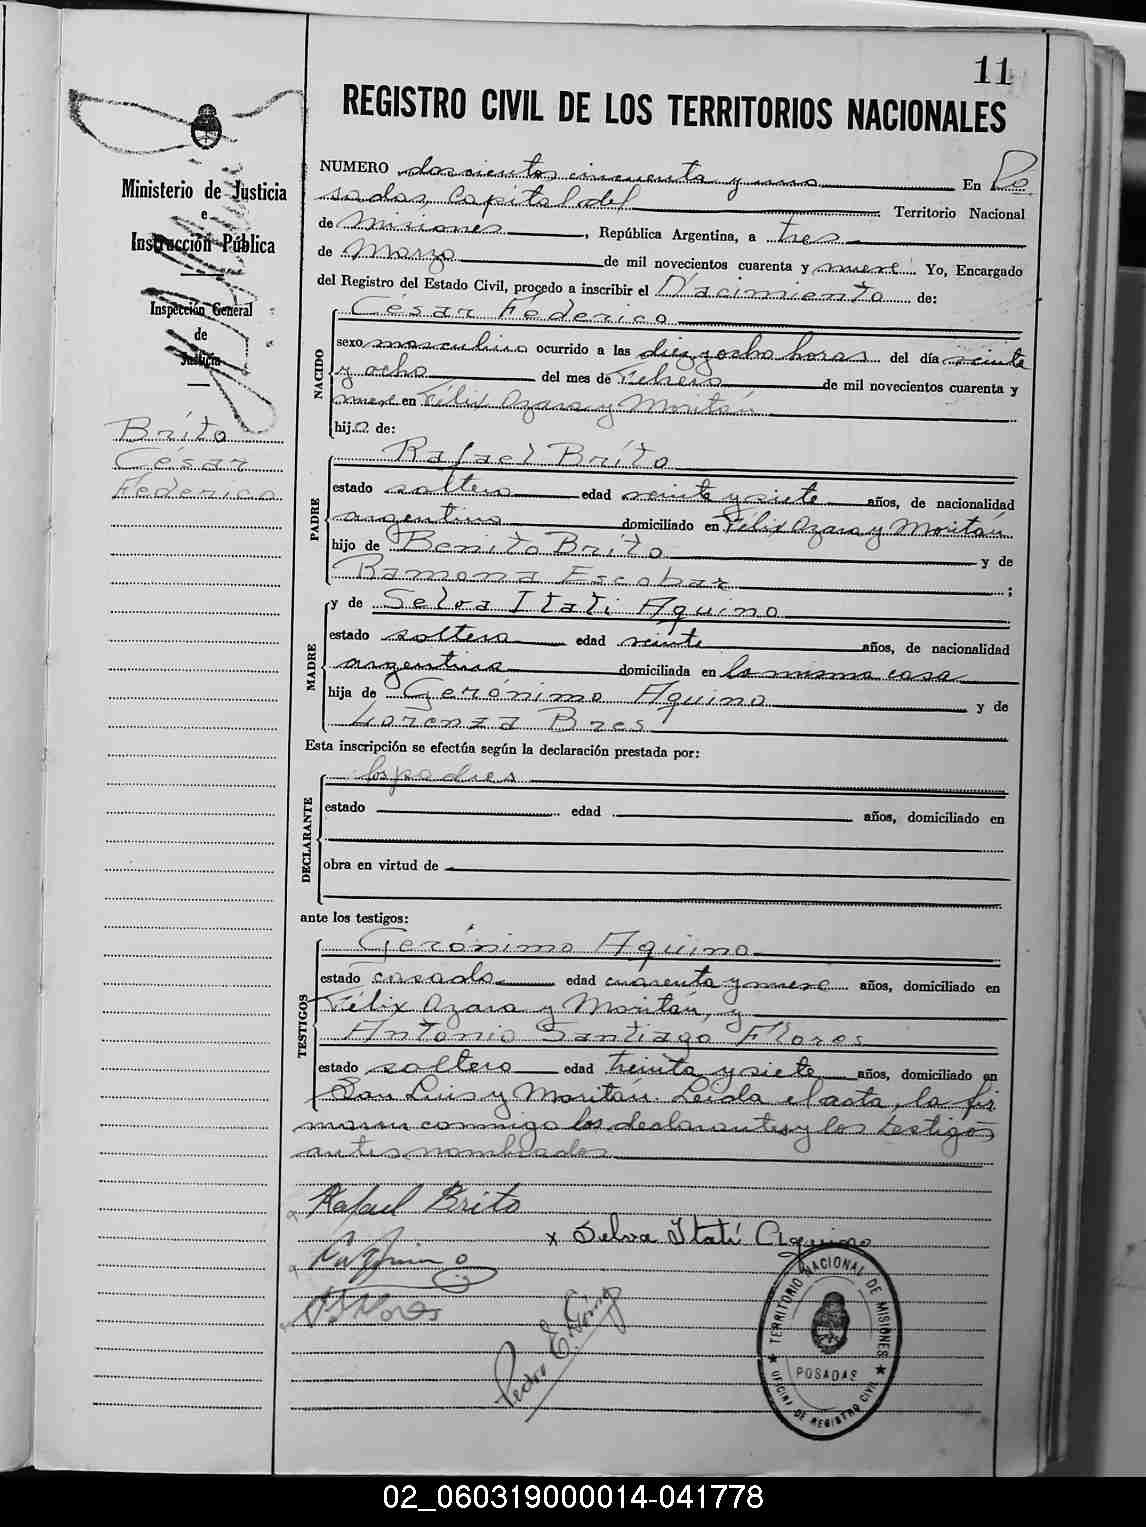 11
REGISTRO CIVIL DE LOS TERRITORIOS NACIONALES
Ministerio de Justicia
e
Instrucción Pública
Inspección General
de
Justicia
Brito
César
Federico
NUMERO doscientos cincuenta y uno En Po
sadas, Capital del Territorio Nacional
de Misiones, República Argentina, a tres
de Marzo de mil novecientos cuarenta y nueve. Yo, Encargado
del Registro del Estado Civil, procedo a inscribir el Nacimiento de:
NACIDO
César Federico
sexo masculino ocurrido a las diez y ocho horas del día veinte
y ocho del mes de Febrero de mil novecientos cuarenta y
nueve en Félix Azara y Moritán
hijo de:
PADRE
Rafael Brito
estado soltero edad veinte y siete años, de nacionalidad
argentino domiciliado en Félix Azara y Moritán
hijo de Benito Brito y de
Ramona Escobar;
MADRE
y de Selva Itatí Aquino
estado soltera edad veinte años, de nacionalidad
argentina domiciliada en la misma casa
hija de Gerónimo Aquino y de
Lorenza Bres
Esta inscripción se efectúa según la declaración prestada por:
DECLARANTE
los padres
estado edad años, domiciliado en
obra en virtud de
ante los testigos:
TESTIGOS
Gerónimo Aquino
estado casado edad cuarenta y nueve años, domiciliado en
Félix Azara y Moritán, y
Antonio Santiago Flores
estado soltero edad treinta y siete años, domiciliado en
San Luis y Moritán. Leída el acta, la fir
maron conmigo los declarantes y los testigos
antes nombrados
Rafael Brito
x Selva Itatí Aquino
Flores
Pedro E.
TERRITORIO NACIONAL DE MISIONES
POSADAS
OFICINA DE REGISTRO CIVIL
02_060319000014-041778